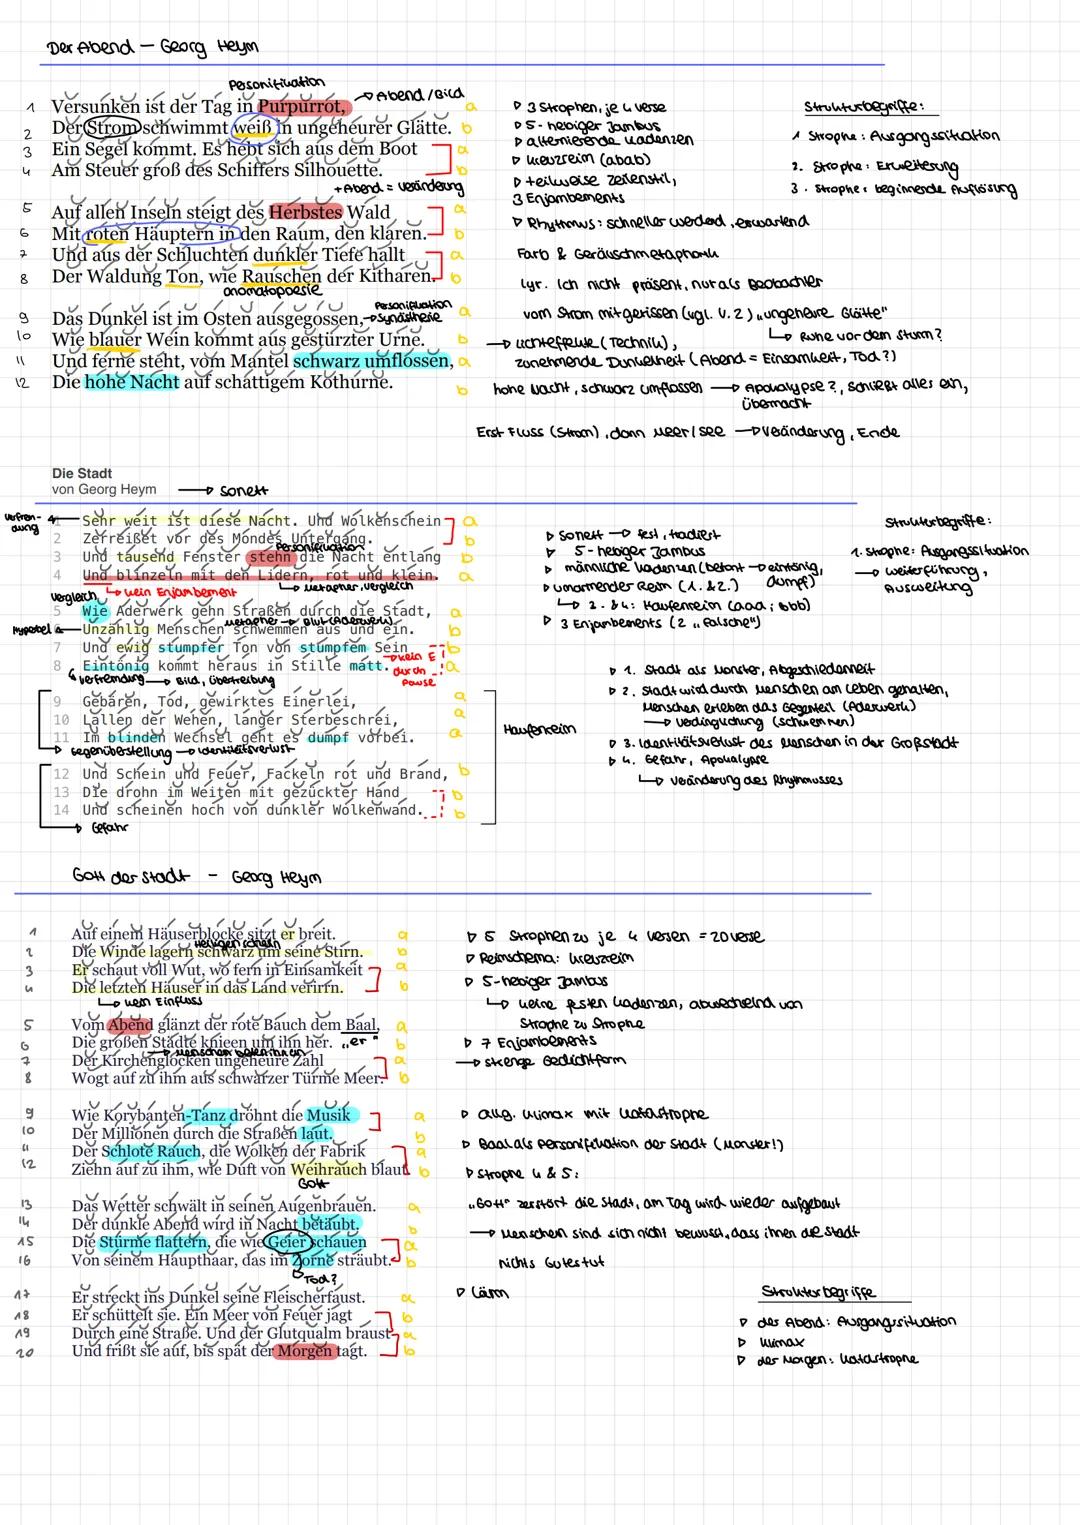 Der Abend – Georg Heym
Personifikation
→ Abend / Bild
1 Versunken ist der Tag in Purpurrot, a
2 Der Strom schwimmt weiß in ungeheurer Glätte. b
3 Ein Segel kommt. Es hebt sich aus dem Boot a
4 Am Steuer groß des Schiffers Silhouette. b
+ Abend = Veränderung
5 Auf allen Inseln steigt des Herbstes Wald a
6 Mit roten Häuptern in den Raum, den klaren. b
7 Und aus der Schluchten dunkler Tiefe hallt a
8 Der Waldung Ton, wie Rauschen der Kitharen. b
onomatopoesie
Personifikation
9 Das Dunkel ist im Osten ausgegossen, → Synästhesie a
10 Wie blauer Wein kommt aus gestürzter Urne. b
11 Und ferne steht, vom Mantel schwarz umflossen, a
12 Die hohe Nacht auf schattigem Kothurne. b
▷ 3 Strophen, je 4 Verse
▷ 5-hebiger Jambus
▷ alternierende Kadenzen
▷ Kreuzreim (abab)
▷ teilweise Zeilenstil,
3 Enjambements
▷ Rhythmus: schneller werdend, erwartend
Farb & Geräuschmetaphorik
lyr. Ich nicht präsent, nur als Beobachter
vom Strom mitgerissen (vgl. V. 2) „ungeheure Glätte"
↳ Ruhe vor dem Sturm?
→ Lichteffekte (Technik),
zunehmende Dunkelheit (Abend = Einsamkeit, Tod?)
hohe Nacht, schwarz umflossen → Apokalypse?, schließt alles ein,
Übermacht
Erst Fluss (Strom), dann Meer / See → Veränderung, Ende
Strukturbegriffe:
1 Strophe: Ausgangssituation
2. Strophe: Erweiterung
3. Strophe: beginnende Auflösung
Die Stadt
von Georg Heym → Sonett
Verfrem-
dung
1 Sehr weit ist diese Nacht. Und Wolkenschein a
2 Zerreißet vor des Mondes Untergang. b
Personifikation
3 Und tausend Fenster stehn die Nacht entlang b
4 Und blinzeln mit den Lidern, rot und klein. a
↳ kein Enjambement
↳ Metapher, Vergleich
Vergleich
5 Wie Aderwerk gehn Straßen durch die Stadt, a
Metapher → Blut (Aderwerk)
Hyperbel
6 Unzählig Menschen schwemmen aus und ein. b
7 Und ewig stumpfer Ton von stumpfem Sein b
8 Eintönig kommt heraus in Stille matt. a
→ kein E
durch
Pause
Verfremdung → Bild, Übertreibung
9 Gebären, Tod, gewirktes Einerlei, a
10 Lallen der Wehen, langer Sterbeschrei, a
11 Im blinden Wechsel geht es dumpf vorbei. a
Gegenüberstellung → Identitätsverlust
12 Und Schein und Feuer, Fackeln rot und Brand, b
13 Die drohn im Weiten mit gezückter Hand b
14 Und scheinen hoch von dunkler Wolkenwand. b
→ Gefahr
Haufenreim
▷ Sonett → fest, tradiert
▷ 5-hebiger Jambus
▷ männliche Kadenzen (betont → eintönig,
dumpf)
▷ umarmender Reim (1. & 2.)
↳ 3. & 4: Haufenreim (aaa, bbb)
▷ 3 Enjambements (2 „falsche")
Strukturbegriffe:
1. Strophe: Ausgangssituation
→ Weiterführung,
Ausweitung
▷ 1. Stadt als Monster, Abgeschiedenheit
▷ 2. Stadt wird durch Menschen am Leben gehalten,
Menschen erleben das Gegenteil (Aderwerk)
→ Verdinglichung (schwemmen)
▷ 3. Identitätsverlust des Menschen in der Großstadt
▷ 4. Gefahr, Apokalypse
↳ Veränderung des Rhythmusses
Gott der Stadt - Georg Heym
1 Auf einem Häuserblocke sitzt er breit. a
Heiligenschein
2 Die Winde lagern schwarz um seine Stirn. b
3 Er schaut voll Wut, wo fern in Einsamkeit a
4 Die letzten Häuser in das Land verirrn. b
↳ kein Einfluss
5 Vom Abend glänzt der rote Bauch dem Baal, a
6 Die großen Städte knieen um ihn her. „er" b
→ Menschen beten ihn an
7 Der Kirchenglocken ungeheure Zahl a
8 Wogt auf zu ihm aus schwarzer Türme Meer. b
9 Wie Korybanten-Tanz dröhnt die Musik a
10 Der Millionen durch die Straßen laut. b
11 Der Schlote Rauch, die Wolken der Fabrik a
12 Ziehn auf zu ihm, wie Duft von Weihrauch blaut. b
Gott
13 Das Wetter schwält in seinen Augenbrauen. a
14 Der dunkle Abend wird in Nacht betäubt. b
15 Die Stürme flattern, die wie Geier schauen a
16 Von seinem Haupthaar, das im Zorne sträubt. b
Tod?
17 Er streckt ins Dunkel seine Fleischerfaust. a
18 Er schüttelt sie. Ein Meer von Feuer jagt b
19 Durch eine Straße. Und der Glutqualm braust a
20 Und frißt sie auf, bis spät der Morgen tagt. b
▷ 5 Strophen zu je 4 Versen = 20 Verse
▷ Reimschema: Kreuzreim
▷ 5-hebiger Jambus
↳ keine festen Kadenzen, abwechselnd von
Strophe zu Strophe
▷ 7 Enjambements
→ strenge Gedichtform
▷ allg. Klimax mit Katastrophe
▷ Baal als Personifikation der Stadt (Monster!)
▷ Strophe 4 & 5:
„Gott" zerstört die Stadt, am Tag wird wieder aufgebaut
→ Menschen sind sich nicht bewusst, dass ihnen die Stadt
nichts Gutes tut
▷ Lärm
Strukturbegriffe
▷ der Abend: Ausgangssituation
▷ Klimax
▷ der Morgen: Katastrophe